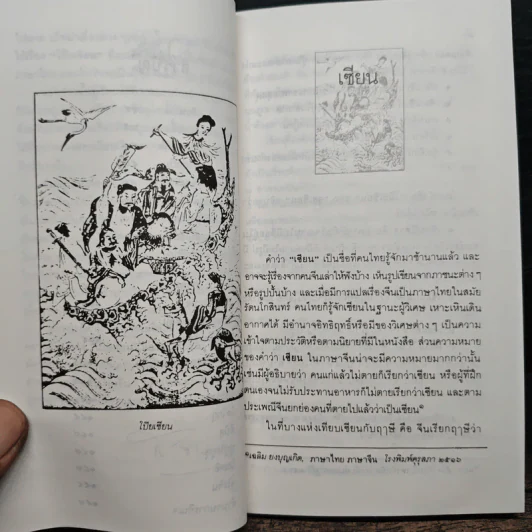 โป๊ยเซียน
เซียน
คำว่า "เซียน" เป็นชื่อที่คนไทยรู้จักมาช้านานแล้ว และ
อาจจะรู้เรื่องจากคนจีนเล่าให้ฟังบ้าง เห็นรูปเซียนจากภาชนะต่าง ๆ
หรือรูปปั้นบ้าง และเมื่อมีการแปลเรื่องจีนเป็นภาษาไทยในสมัย
รัตนโกสินทร์ คนไทยก็รู้จักเซียนในฐานะผู้วิเศษ เหาะเหินเดิน
อากาศได้ มีอำนาจอิทธิฤทธิ์หรือมีของวิเศษต่าง ๆ เป็นความ
เข้าใจตามประวัติหรือตามนิยายที่มีในหนังสือ ส่วนความหมาย
ของคำว่า เซียน ในภาษาจีนน่าจะมีความหมายมากกว่านั้น
เช่นมีผู้อธิบายว่า คนแก่แล้วไม่ตายก็เรียกว่าเซียน หรือผู้ที่ฝึก
ตนเองจนไม่รับประทานอาหารก็ไม่ตายเรียกว่าเซียน และตาม
ประเพณีจีนยกย่องคนที่ตายไปแล้วว่าเป็นเซียน
ในที่บางแห่งเทียบเซียนกับฤๅษี คือ จีนเรียกฤๅษีว่า
เฉลิม ยงบุญเกิด, ภาษาไทย ภาษาจีน โรงพิมพ์คุรุสภา ๒๕๑๖